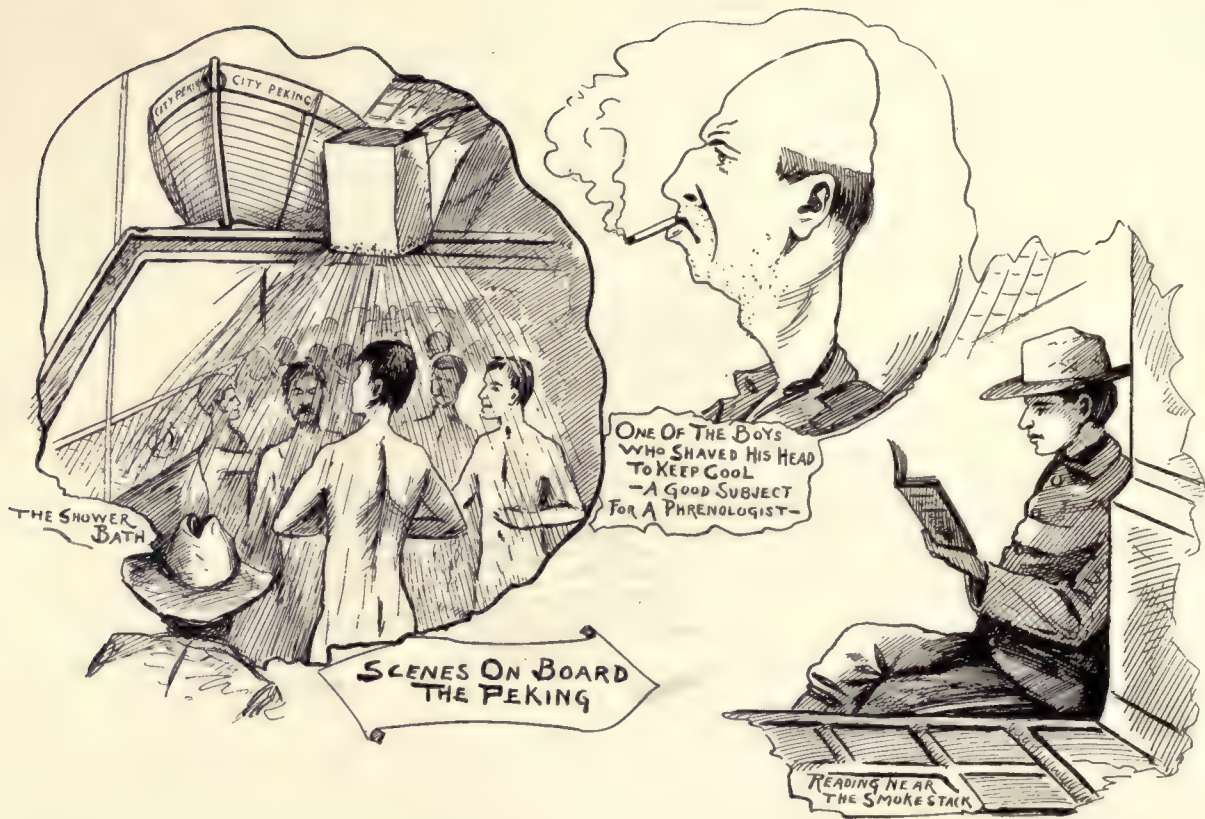 CITY PEKIN
CITY PEKING
THE SHOWER
BATH
ONE OF THE BOYS
WHO SHAVED HIS HEAD
TO KEEP COOL
—A GOOD SUBJECT
FOR A PHRENOLOGIST—
SCENES ON BOARD
THE PEKING
READING NEAR
THE SMOKESTACK